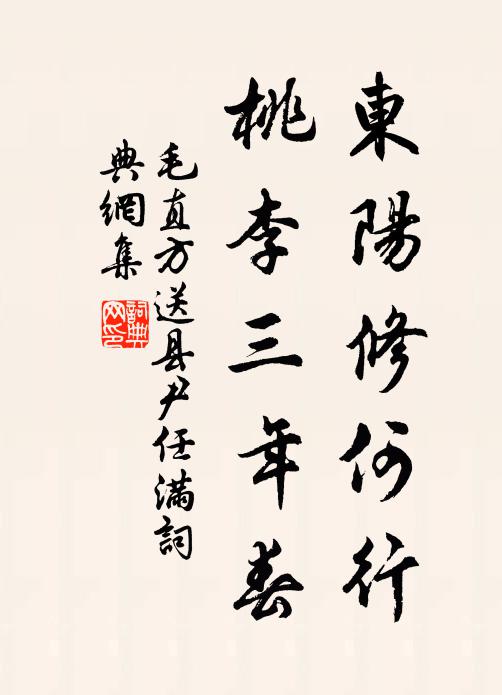 東陽修何行
桃李三年春
毛直方送县尹任满詞
典網集
詞典網印